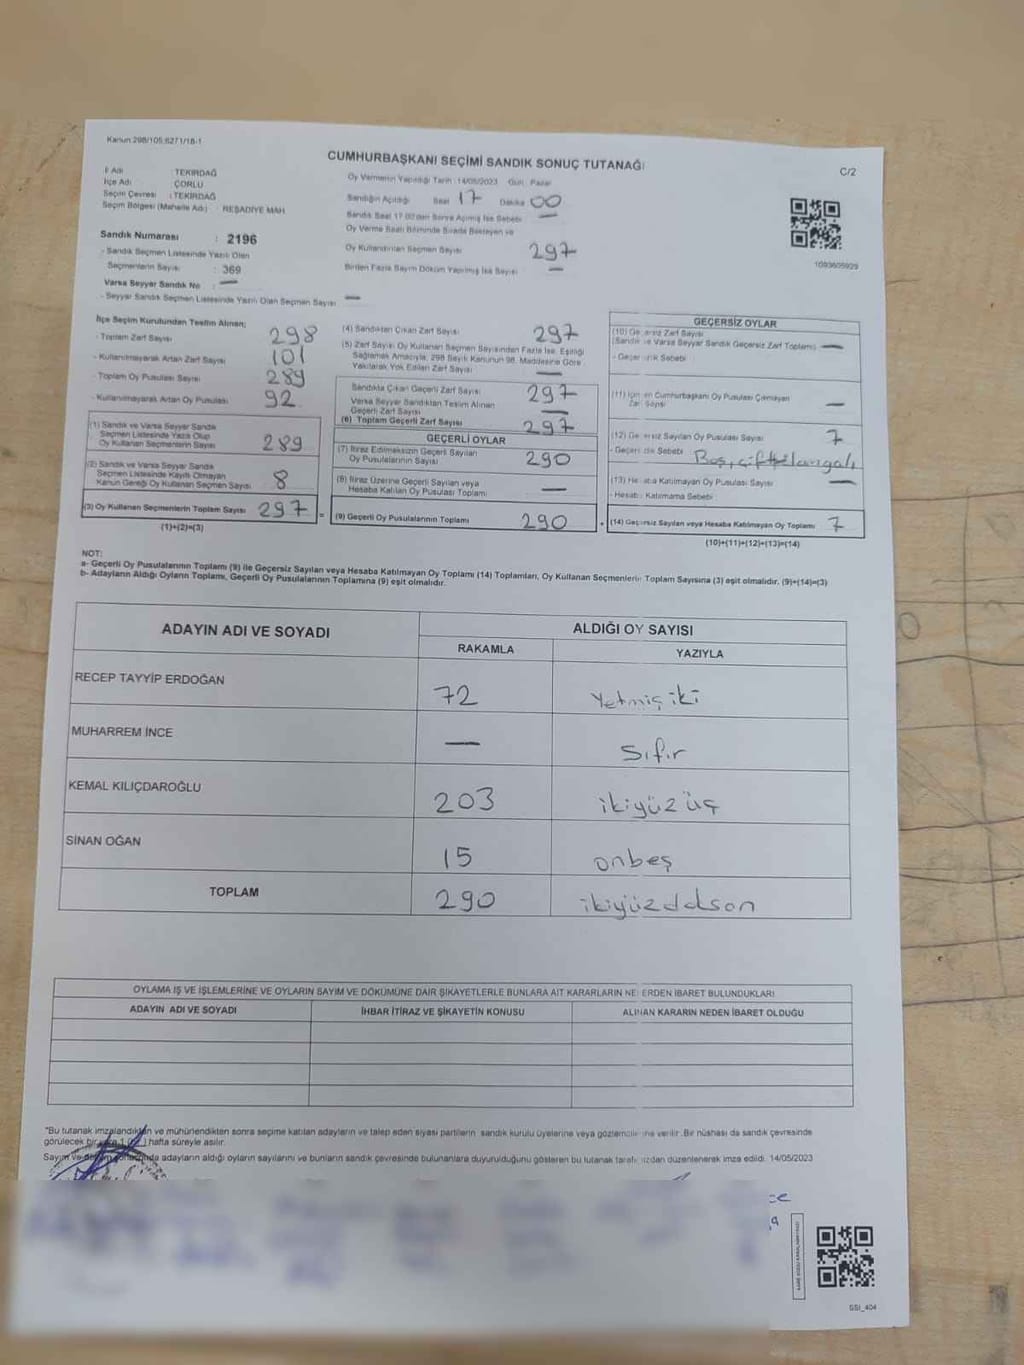 Kanun 298/105;6271/18-1
CUMHURBAŞKANI SEÇİMİ SANDIK SONUÇ TUTANAĞI
C/2
İl Adı : TEKİRDAĞ
İlçe Adı : ÇORLU
Seçim Çevresi : TEKİRDAĞ
Seçim Bölgesi (Mahalle Adı) : REŞADİYE MAH
Sandık Numarası : 2196
- Sandık Seçmen Listesinde Yazılı Olan
Seçmenlerin Sayısı : 369
Varsa Seyyar Sandık No : —
- Seyyar Sandık Seçmen Listesinde Yazılı Olan Seçmen Sayısı : —
Oy Vermenin Yapıldığı Tarih :14/05/2023 Gün : Pazar
Sandığın Açıldığı Saat 17 Dakika 00
Sandık Saat 17.00'dan Sonra Açılmış İse Sebebi —
Oy Verme Saati Bitiminde Sırada Bekleyen ve
Oy Kullandırılan Seçmen Sayısı 297
Birden Fazla Sayım Döküm Yapılmış İse Sayısı —
1093605929
İlçe Seçim Kurulundan Teslim Alınan;
- Toplam Zarf Sayısı 298
- Kullanılmayarak Artan Zarf Sayısı 101
- Toplam Oy Pusulası Sayısı 289
- Kullanılmayarak Artan Oy Pusulası 92
(1) Sandık ve Varsa Seyyar Sandık
Seçmen Listesinde Yazılı Olup
Oy Kullanan Seçmenlerin Sayısı 289
(2) Sandık ve Varsa Seyyar Sandık
Seçmen Listesinde Kayıtlı Olmayan
Kanun Gereği Oy Kullanan Seçmen Sayısı 8
(3) Oy Kullanan Seçmenlerin Toplam Sayısı 297 =
(1)+(2)=(3)
(4) Sandıktan Çıkan Zarf Sayısı 297
(5) Zarf Sayısı Oy Kullanan Seçmen Sayısından Fazla İse, Eşitliği
Sağlamak Amacıyla, 298 Sayılı Kanunun 98. Maddesine Göre
Yakılarak Yok Edilen Zarf Sayısı —
Sandıkta Çıkan Geçerli Zarf Sayısı 297
Varsa Seyyar Sandıktan Teslim Alınan
Geçerli Zarf Sayısı —
(6) Toplam Geçerli Zarf Sayısı 297
GEÇERLİ OYLAR
(7) İtiraz Edilmeksizin Geçerli Sayılan
Oy Pusulalarının Sayısı 290
(8) İtiraz Üzerine Geçerli Sayılan veya
Hesaba Katılan Oy Pusulası Toplamı —
(9) Geçerli Oy Pusulalarının Toplamı 290 +
GEÇERSİZ OYLAR
(10) Geçersiz Zarf Sayısı
(Sandık ve Varsa Seyyar Sandık Geçersiz Zarf Toplamı) —
- Geçersizlik Sebebi
(11) İçinden Cumhurbaşkanı Oy Pusulası Çıkmayan
Zarf Sayısı —
(12) Geçersiz Sayılan Oy Pusulası Sayısı 7
- Geçersizlik Sebebi Boş,
(13) Hesaba Katılmayan Oy Pusulası Sayısı —
- Hesaba Katılmama Sebebi
(14) Geçersiz Sayılan veya Hesaba Katılmayan Oy Toplamı 7
(10)+(11)+(12)+(13)=(14)
NOT:
a- Geçerli Oy Pusulalarının Toplamı (9) ile Geçersiz Sayılan veya Hesaba Katılmayan Oy Toplamı (14) Toplamları, Oy Kullanan Seçmenlerin Toplam Sayısına (3) eşit olmalıdır. (9)+(14)=(3)
b- Adayların Aldığı Oyların Toplamı, Geçerli Oy Pusulalarının Toplamına (9) eşit olmalıdır.
ADAYIN ADI VE SOYADI
ALDIĞI OY SAYISI
RAKAMLA YAZIYLA
RECEP TAYYİP ERDOĞAN 72 Yetmiş iki
MUHARREM İNCE — Sıfır
KEMAL KILIÇDAROĞLU 203 ikiyüz üç
SİNAN OĞAN 15 onbeş
TOPLAM 290 ikiyüzdoksan
OYLAMA İŞ VE İŞLEMLERİNE VE OYLARIN SAYIM VE DÖKÜMÜNE DAİR ŞİKAYETLERLE BUNLARA AİT KARARLARIN NELERDEN İBARET BULUNDUKLARI
ADAYIN ADI VE SOYADI İHBAR İTİRAZ VE ŞİKAYETİN KONUSU ALINAN KARARIN NEDEN İBARET OLDUĞU
*Bu tutanak imzalandıktan ve mühürlendikten sonra seçime katılan adayların ve talep eden siyasi partilerin sandık kurulu üyelerine veya gözlemcilerine verilir. Bir nüshası da sandık çevresinde
görülecek bir yere 1 hafta süreyle asılır.
Sayım ve adayların aldığı oyların sayılarını ve bunların sandık çevresinde bulunanlara duyurulduğunu gösteren bu tutanak tarafımızdan düzenlenerek imza edildi. 14/05/2023
SSİ_404